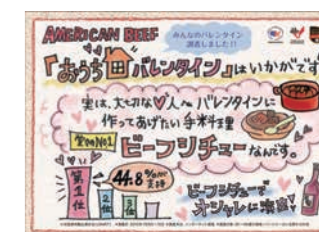 AMERICAN BEEF
みんなのバレンタイン
調査しました!!
『おうちバレンタイン』はいかがです
実は、大切な♡人へバレンタインに
作ってあげたい手料理
堂々No1
ビーフシチューなんです。
第1位
2位
3位
44.8%の方に
支持
ビーフシチューで
オシャレに演出!